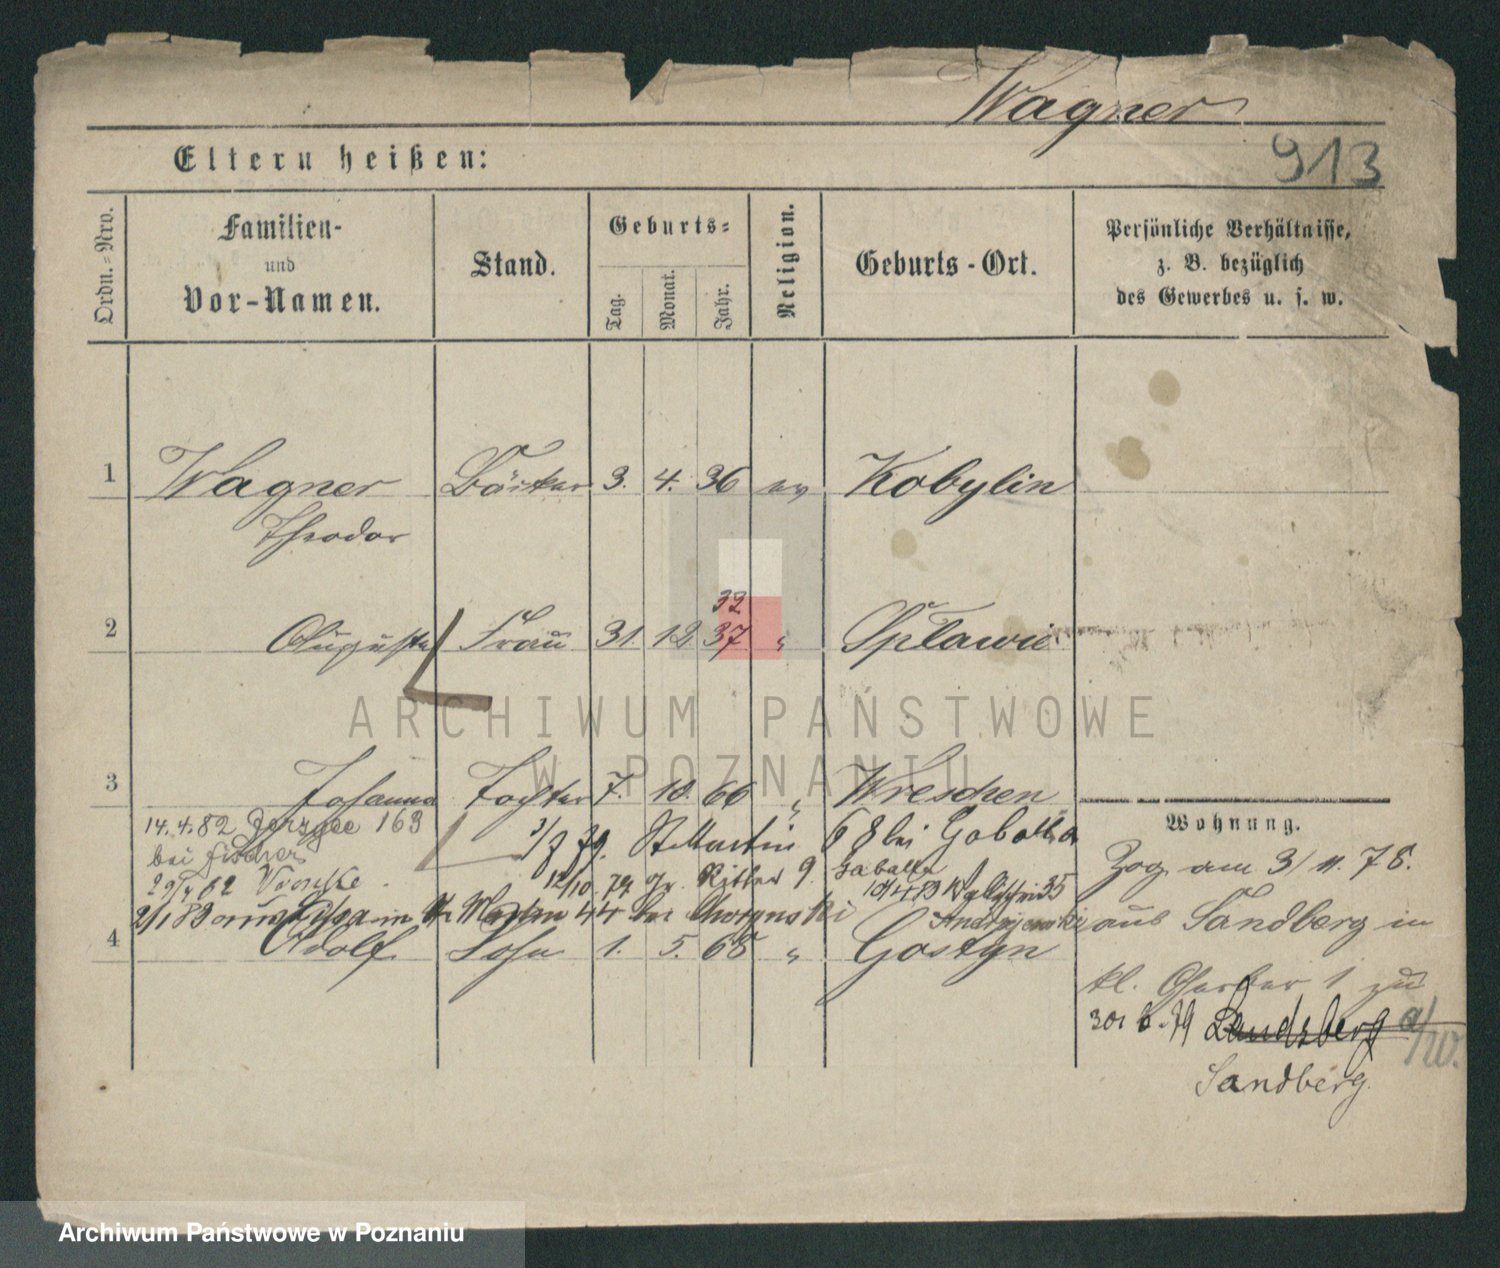 Wagner
913
Eltern heißen:
Ordn.-Nro.
Familien-
und
Vor-Namen.
Stand.
Geburts-
Tag.
Monat.
Jahr.
Religion.
Geburts-Ort.
Persönliche Verhältnisse,
z. B. bezüglich
des Gewerbes u. s. w.
1 Wagner Bäcker 3. 4. 36 ev Kobylin
Theodor
32
2 Auguste Frau 31. 12. 37 " Spławie
ARCHIWUM PAŃSTWOWE
W POZNANIU
3 Johanna Tochter 7. 10. 66 " Wreschen
Wohnung.
14.4.82 163
bei Fischer
79. St Martin 68 bei Gobalka
Zog. am 3/11.78.
29/4 82 Wronke. 12/10. 79 gr. Ritter 9.
2/1 83 aus Lissa in St Martin 44 bei
aus Sandberg in
4 Adolf Sohn 1. 5. 68 " Gostyn
kl. Gerber 1 zu
30. 6. 79 Landsberg a/W.
Sandberg.
Archiwum Państwowe w Poznaniu